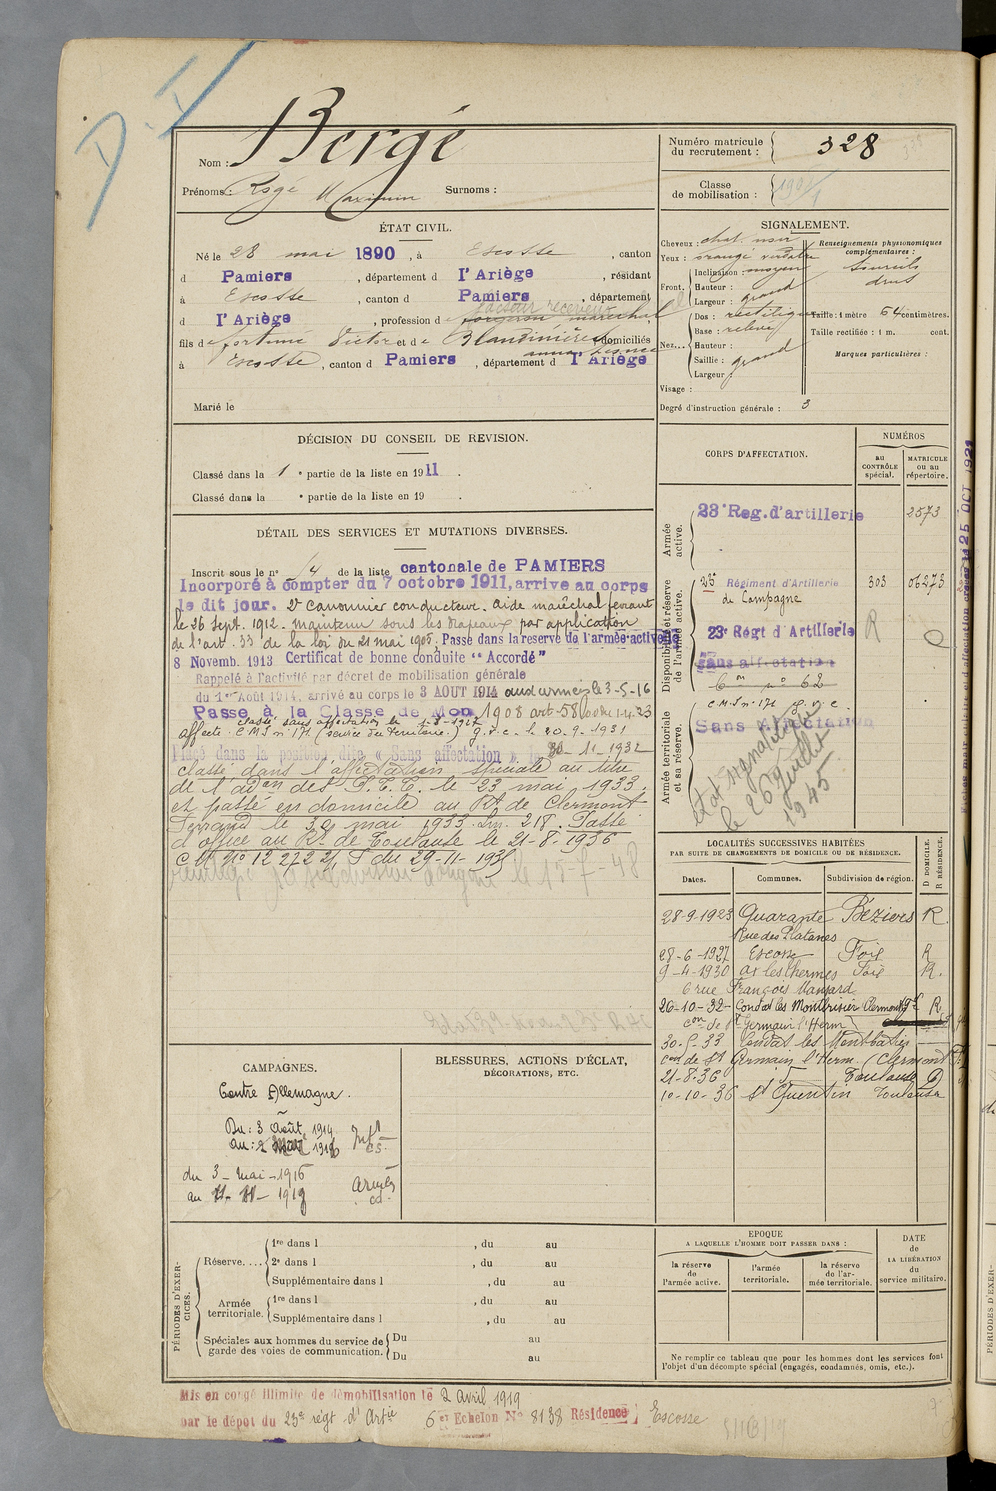 D.I
Nom : Bergé
Prénoms : Rogé Maximin Surnoms :
Numéro matricule du recrutement : 328
Classe de mobilisation :
ÉTAT CIVIL.
Né le 28 mai 1890, à Escosse, canton
d Pamiers, département d l'Ariège, résidant
à Escosse, canton d Pamiers, département
facteur receveur
d l'Ariège, profession d forgeron maréchal
fils de fortuné Victor et de Blandinières domiciliés
à Escosse, canton d Pamiers, département d l'Ariège
Marié le
SIGNALEMENT.
Cheveux : chat. noir
Yeux : orangé verdâtre
Front. Inclinaison : moyen
Hauteur :
Largeur : grand
Nez... Dos : rectiligne
Base : relevé
Hauteur :
Saillie : grand
Largeur :
Visage :
Degré d'instruction générale : 3
Renseignements physionomiques complémentaires :
sourcils
drus
Taille : 1 mètre 64 centimètres.
Taille rectifiée : 1 m. cent.
Marques particulières :
DÉCISION DU CONSEIL DE REVISION.
Classé dans la 1e partie de la liste en 1911.
Classé dans la e partie de la liste en 19 .
DÉTAIL DES SERVICES ET MUTATIONS DIVERSES.
Inscrit sous le n° 14 de la liste cantonale de PAMIERS
Incorporé à compter du 7 octobre 1911, arrive au corps
le dit jour. 2e Canonnier conducteur. Aide maréchal ferrant
le 26 Sept. 1912. Maintenu sous les drapeaux par application
de l'art. 33 de la loi du 21 mai 1905. Passé dans la réserve de l'armée active le
8 Novemb. 1913 Certificat de bonne conduite "Accordé"
Rappelé à l'activité par décret de mobilisation générale
du 1er Août 1914, arrivé au corps le 3 AOUT 1914 aux armées le 3-5-16
Passe à la Classe de Mon 1908 art-58
classé sans affectation le
affecté C.M.J n° 171 (service du territoire.) g.v.c. le 20.9.1931
Placé dans la position dite « Sans affectation » le 30 11-1932
classé dans l'affectation spéciale au titre
de l'adon des P.T.T. le 23 mai 1933.
et passé en domicile au Rt de Clermont
Ferrand le 30 mai 1933. Ln. 218. Passé
d'office au Rt de Toulouse le 21-8-1936
le 15-7-48
CORPS D'AFFECTATION.
NUMÉROS
au CONTRÔLE spécial.
MATRICULE ou au répertoire.
Armée active.
23e Reg. d'artillerie 2573
Disponibilité et réserve de l'armée active.
25 Régiment d'Artillerie 303 06273
de Campagne
23e Régt d'Artillerie R
sans affectation
Armée territoriale et sa réserve.
C.M.J n° 171 g.v.c.
Sans affectation
état signalétique
le 26 Juillet
1945
LOCALITÉS SUCCESSIVES HABITÉES
PAR SUITE DE CHANGEMENTS DE DOMICILE OU DE RÉSIDENCE.
Dates. Communes. Subdivision de région. D DOMICILE. R RÉSIDENCE.
28-9-1923 Quarante Béziers R.
Rue des Platanes
28-6-1927 Escosse Foix R
9-4-1930 Ax les thermes Foix R.
6 rue François Mansard
20-10-32- Condat les Montboissier Clermont Fd R
con de St Germain l'Herm
30-5-33 Condat les Montboissier
con de St Germain l'Herm (Clermont Fd
21-8-36 Toulouse D
10-10-36 St Quentin Toulouse
CAMPAGNES.
Contre Allemagne.
Du : 3 Août 1914
au : 2 Mai 1916
du 3 - Mai - 1916
au
armées
BLESSURES, ACTIONS D'ÉCLAT,
DÉCORATIONS, ETC.
PÉRIODES D'EXERCICES.
Réserve.... 1re dans l , du au
2e dans l , du au
Supplémentaire dans l , du au
Armée territoriale. 1re dans l , du au
Supplémentaire dans l , du au
Spéciales aux hommes du service de garde des voies de communication. Du au
Du au
EPOQUE
A LAQUELLE L'HOMME DOIT PASSER DANS :
la réserve de l'armée active.
l'armée territoriale.
la réserve de l'armée territoriale.
DATE de LA LIBÉRATION du service militaire.
Ne remplir ce tableau que pour les hommes dont les services font
l'objet d'un décompte spécial (engagés, condamnés, omis, etc.).
Mis en congé illimité de démobilisation le 2 Avril 1919
par le dépôt du 23e régt d'Artie 6e Echelon N° 8138 Résidence Escosse